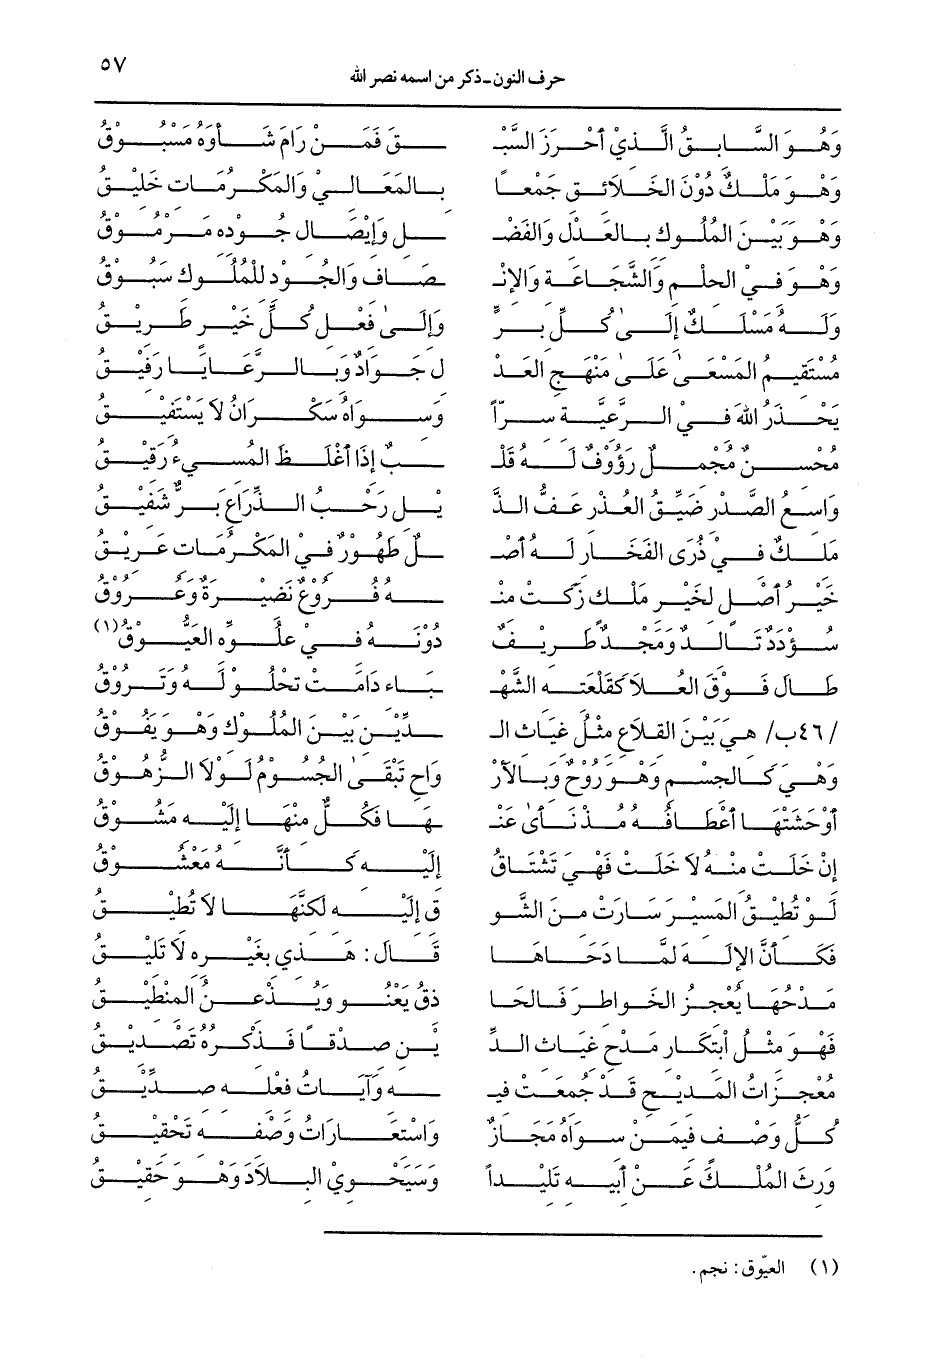 حرف النون-ذكر من اسمه نصر الله ٥٧
وَهُوَ السَّابِقُ الَّذِيْ أَحْرَزَ السَّبْـ ـقَ فَمَنْ رَامَ شَأْوَهُ مَسْبُوْقُ
وَهْوَ مَلْكٌ دُوْنَ الخَلَائِقِ جَمْعًا بِالمَعَالِيْ وَالمَكْرُمَاتِ خَلِيْقُ
وَهْوَ بَيْنَ المُلُوكِ بِالعَدْلِ وَالفَضْـ ـلِ وَإِيْصَالِ جُوْدِهِ مَرْمُوْقُ
وَهْوَ فِيْ الحلْمِ وَالشَّجَاعَةِ وَالإِنْـ ـصَافِ وَالجُوْدِ لِلْمُلُوكِ سَبُوْقُ
وَلَهُ مَسْلَكٌ إِلَىٰ كُلِّ بِرٍّ وَإِلَىٰ فَعْلِ كُلِّ خَيْرٍ طَرِيْقُ
مُسْتَقِيْمُ المَسْعَىٰ عَلَىٰ مَنْهَجِ العَدْ لِ جَوَادٌ وَبَالرَّعَايَا رَفِيْقُ
يَحْذَرُ اللهَ فِيْ الرَّعِيَّةِ سِرّاً وَسِوَاهُ سَكْرَانُ لَا يَسْتَفِيْقُ
مُحْسِنٌ مُجْمِلٌ رَؤُوْفٌ لَهُ قَلْـ ـبٌ إِذَا أَغْلَظَ المُسِيْءُ رَقِيْقُ
وَاسِعُ الصَّدْرِ ضَيِّقُ العُذْرِ عَفُّ الذَّ يْلِ رَحْبُ الذِّرَاعِ بَرٌّ شَفِيْقُ
مَلِكٌ فِيْ ذُرَى الفَخَارِ لَهُ أَصْـ ـلٌ طَهُوْرٌ فِيْ المَكْرُمَاتِ عَرِيْقُ
خَيْرُ أَصْلٍ لِخَيْرِ مَلْكٍ زَكَتْ مِنْـ ـهُ فُرُوْعٌ نَضِيْرَةٌ وَعُرُوْقُ
سُؤْدَدٌ تَالِدٌ وَمَجْدٌ طَرِيْفٌ دُوْنَهُ فِيْ عُلُوِّهِ العَيُّوْقُ(١)
طَالَ فَوْقَ العُلَا كَقَلْعَتِهِ الشَّهْـ ـبَاءِ دَامَتْ تَحْلُوْ لَهُ وَتَرُوْقُ
/٤٦ب/ هِيَ بَيْنَ القِلَاعِ مِثْلُ غِيَاثِ الـ ـدِّيْنِ بَيْنَ المُلُوكِ وَهْوَ يَفُوْقُ
وَهْيَ كَالجِسْمِ وَهْوَ رُوْحٌ وَبِالأَرْ وَاحِ تَبْقَىٰ الجُسُوْمُ لَوْلَا الزُّهُوْقُ
أَوْحَشَتْهَا أَعْطَافُهُ مُذْ نَأَىٰ عَنْـ ـهَا فَكُلٌّ مِنْهَا إِلَيْهِ مَشُوْقُ
إِنْ خَلَتْ مِنْهُ لَا خَلَتْ فَهْيَ تَشْتَاقُ إِلَيْهِ كَأَنَّهُ مَعْشُوْقُ
لَوْ تُطِيْقُ المَسِيْرَ سَارَتْ مِنَ الشَّوْ قِ إِلَيْهِ لَكِنَّهَا لَا تُطِيْقُ
فَكَأَنَّ الإِلَهَ لَمَّا دَحَاهَا قَالَ: هَذِيْ بِغَيْرِهِ لَا تَلِيْقُ
مَدْحُهَا يُعْجِزُ الخَوَاطِرَ فَالحَا ذِقُ يَعْنُوْ وَيُذْعِنُ المِنْطِيْقُ
فَهْوَ مِثْلُ ابْتِكَارِ مَدْحِ غِيَاثِ الدِّ يْنِ صِدْقًا فَذِكْرُهُ تَصْدِيْقُ
مُعْجِزَاتُ المَدِيْحِ قَدْ جُمِعَتْ فِيـ ـهِ وَآيَاتُ فِعْلِهِ صِدِّيْقُ
كُلُّ وَصْفٍ فِيْمَنْ سِوَاهُ مَجَازٌ وَاسْتِعَارَاتُ وَصْفِهِ تَحْقِيْقُ
وَرِثَ المُلْكَ عَنْ أَبِيْهِ تَلِيْداً وَسَيَحْوِيْ البِلَادَ وَهْوَ حَقِيْقُ
(١) العيّوق: نجم.